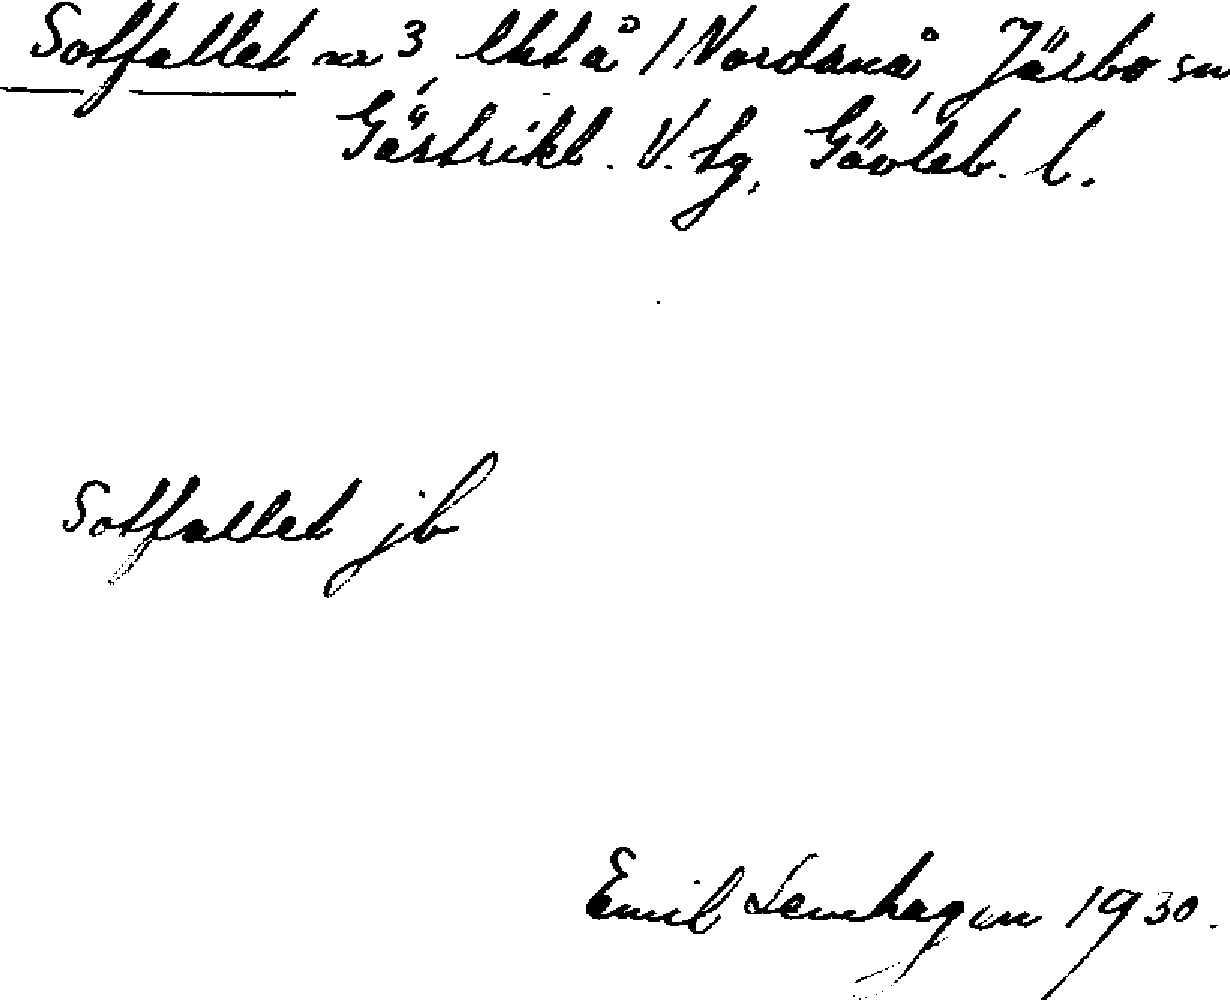 Sotfallet 3 / Nordanå, Järbo sn
Gästrikl. V. tg, Gävleb. l.
Sotfallet jb
Emil Lenhagen 1930.